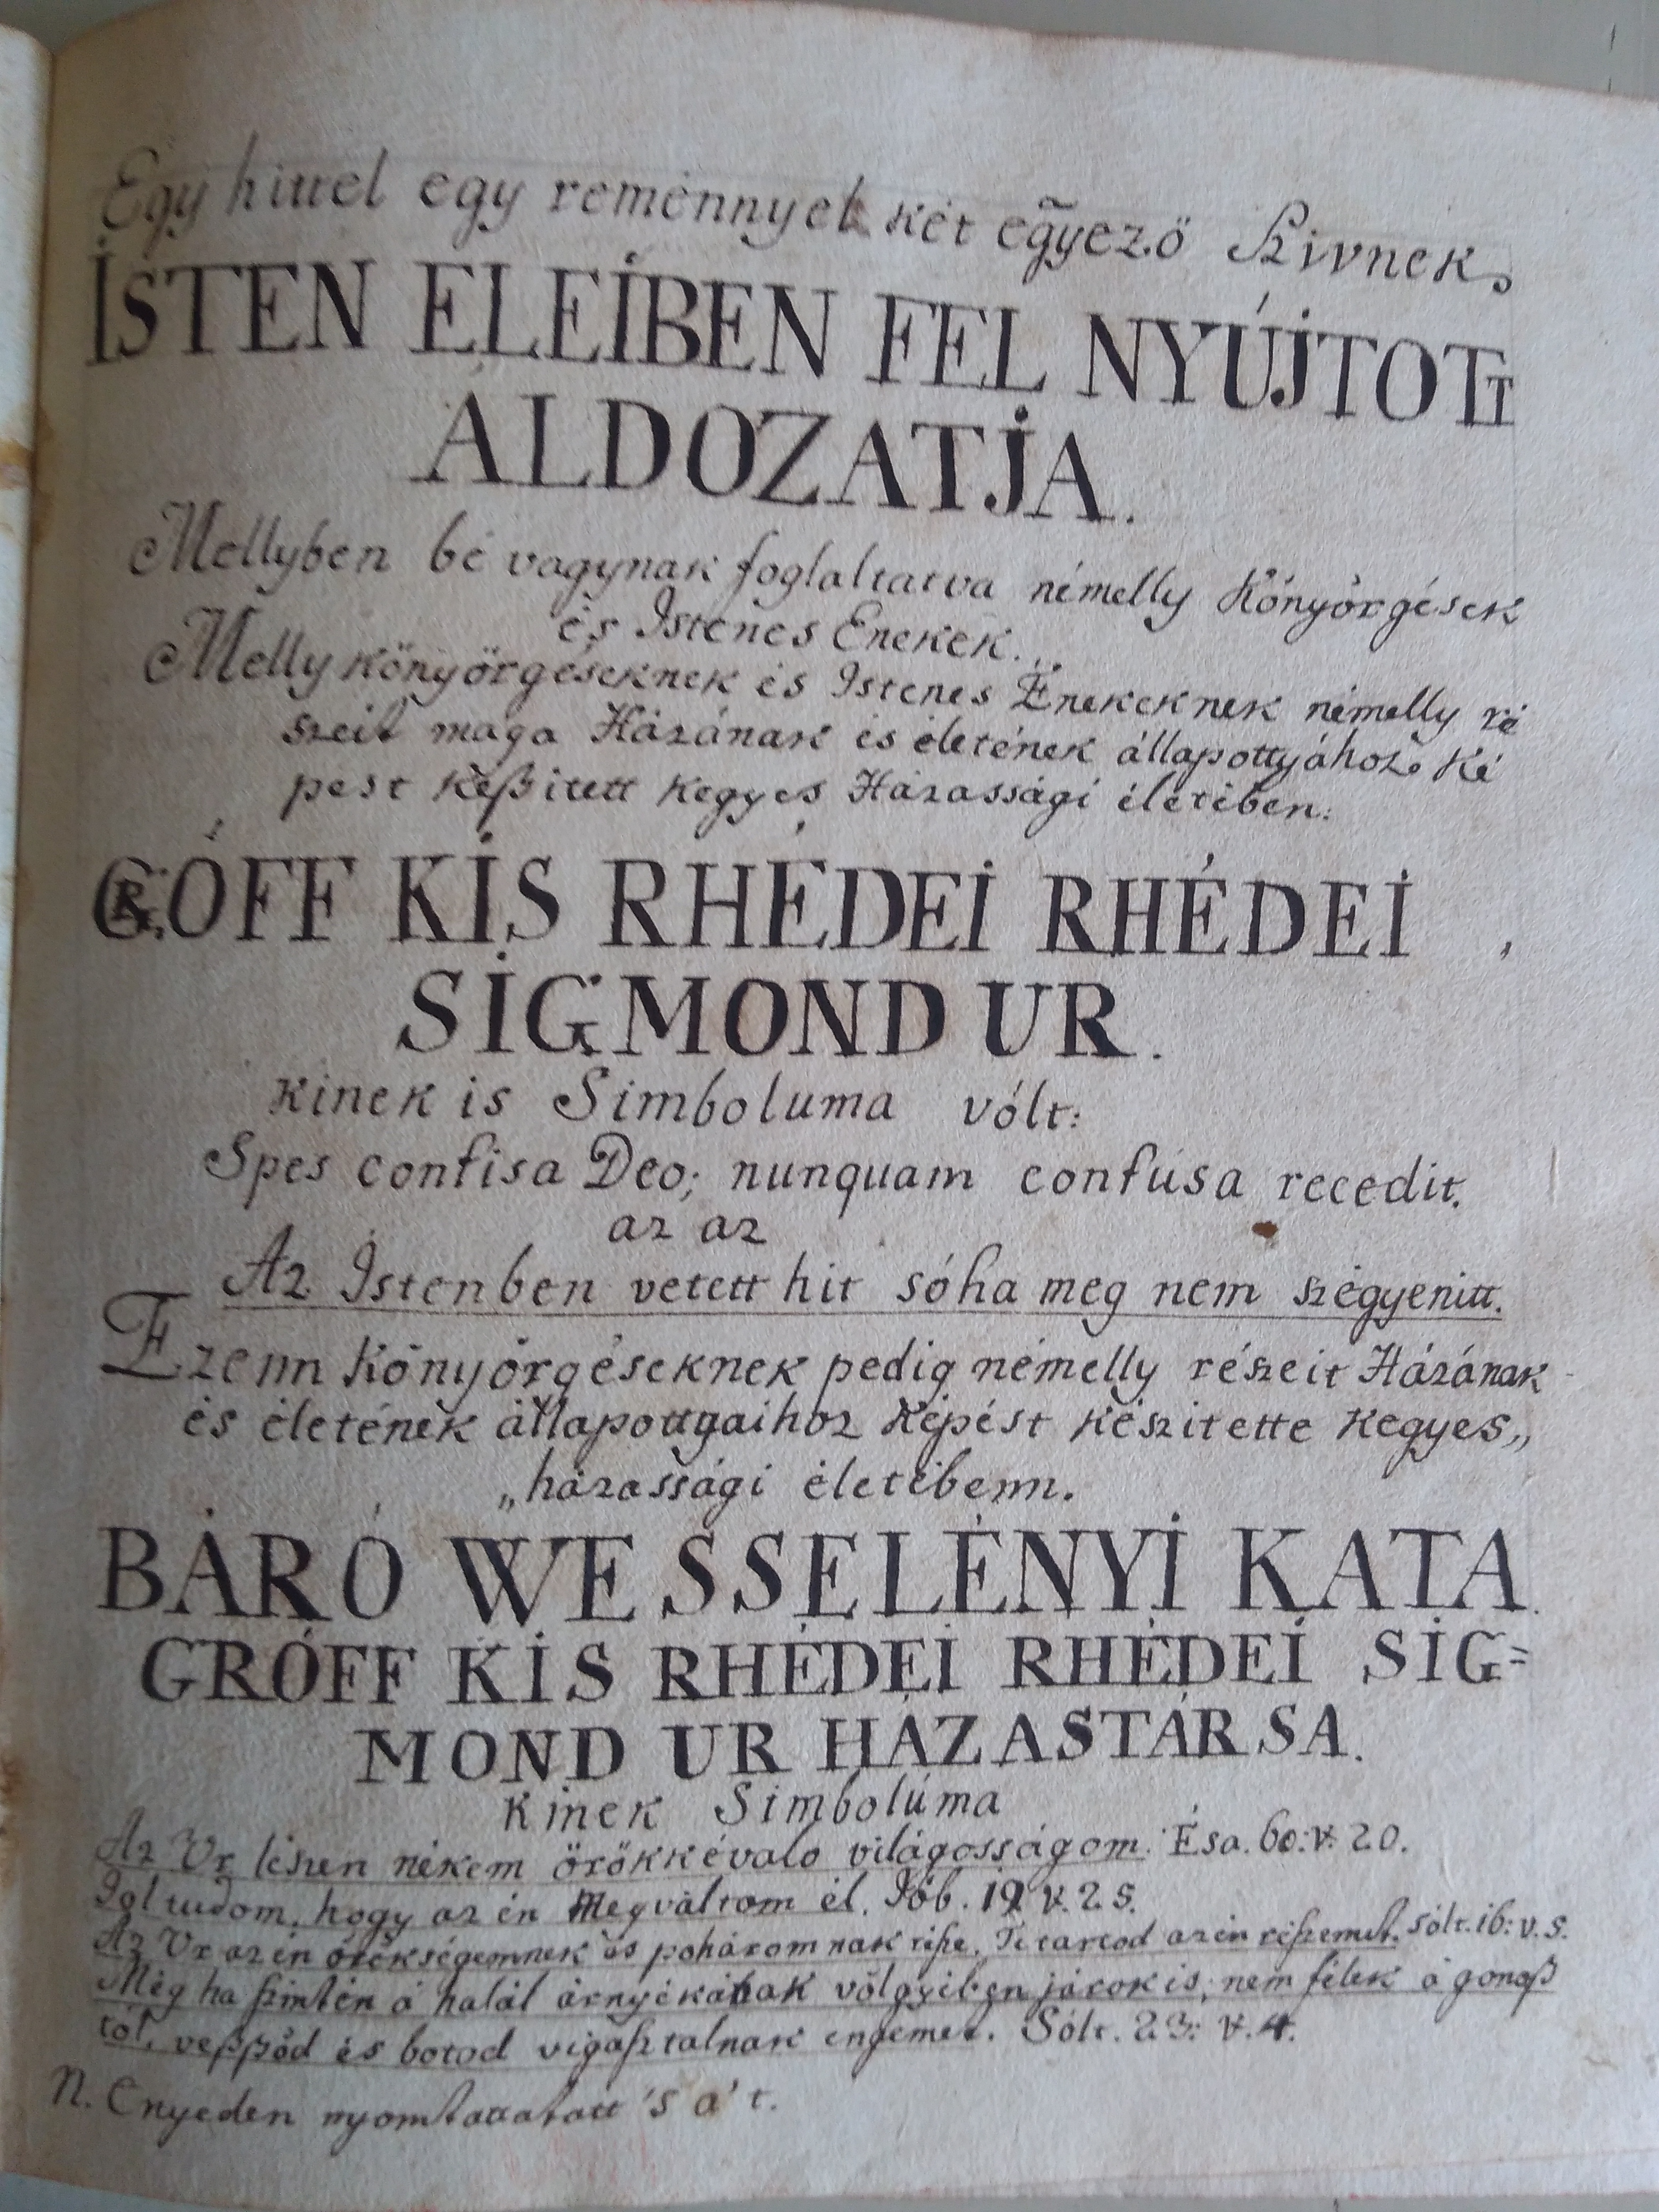 Egy hittel egy reménnyel két eg̃yező Szivnek,
ISTEN ELEIBEN FEL NYÚJTOTT
ÁLDOZATJA.
Mellyben bé vagynak foglaltatva némelly Könyörgések
és Istenes Enekek.
Melly könyörgéseknek és Istenes Énekeknek némelly ré
szeit maga Házának és életének állapottyához ké
pest kéßitett kegyes Házassági életében:
GRÓFF KIS RHÉDEI RHÉDEI
SIGMOND UR.
kinek is Simboluma vólt:
Spes confisa Deo; nunquam confusa recedit.
az az
Az Istenben vetett hit sóha meg nem szégyenitt.
Ezenn Könyörgéseknek pedig némelly részeit Házának
és életének állapottyaihoz képést készitette kegyes„
„házassági életébenn.
BÁRÓ WESSELÉNYI KATA
GRÓFF KIS RHÉDEI RHÉDEI SIG=
MOND UR HÁZASTÁRSA.
Kinek Simbolúma
Az Ur lészen nékem örökkévaló világosságom. Ésa. 60: v. 20.
Jol tudom, hogy az én Megváltom él. Jób. 19 v. 25.
Az Ur az én örökségemnek és poháromnak réße. Te tartod az én réßemet. Sólt. 16: v. 5.
Még ha ßintén á halál árnyékának völgyiben járok is, nem félek á gonoß
tól, veßßőd és botod vigasztalnak engemet. Sólt. 23: v. 4.
N. Enyeden nyomtattatott 's a' t.